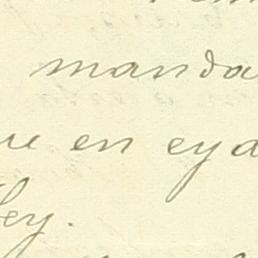 manda
ue en eyd
ley.